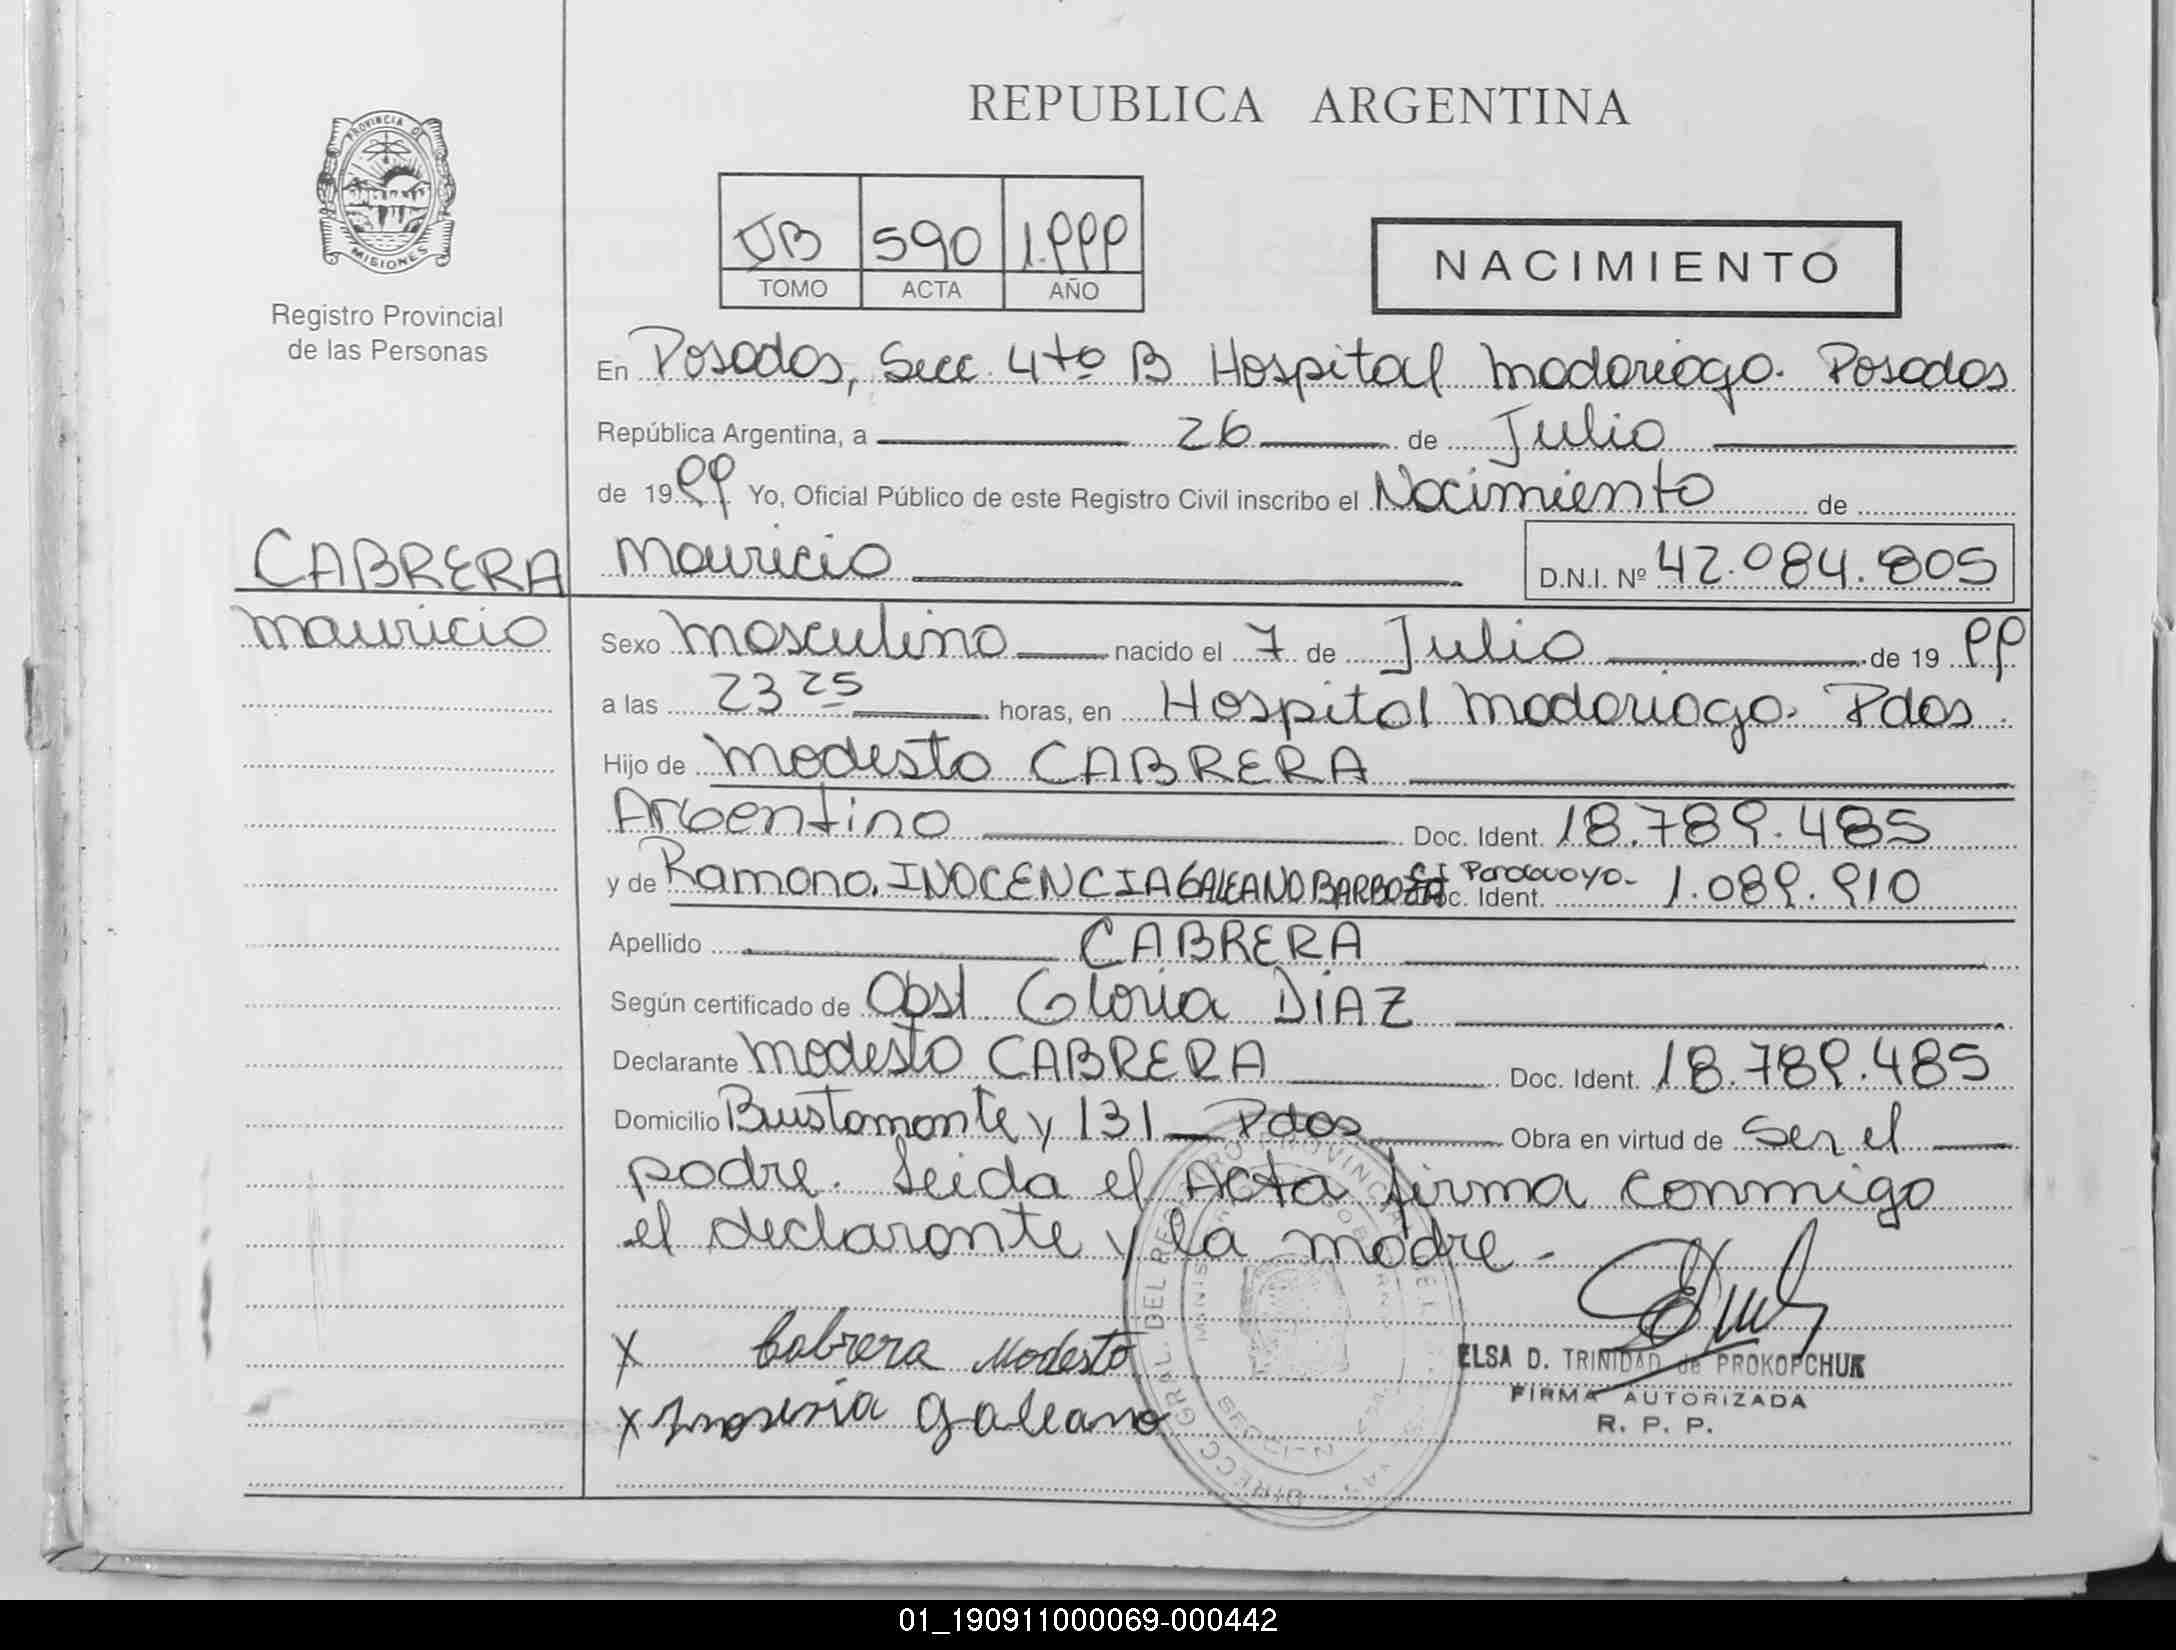 REPUBLICA ARGENTINA
PROVINCIA DE
MISIONES
Registro Provincial
de las Personas
590 1.999
TOMO ACTA AÑO
NACIMIENTO
En Posadas, Secc. 4to B Hospital Madariaga. Posadas
República Argentina, a 26 de Julio
de 1999 Yo, Oficial Público de este Registro Civil inscribo el Nacimiento de
CABRERA Mauricio D.N.I. Nº 42.084.805
Mauricio
Sexo Masculino nacido el 7 de Julio de 1999
a las 23 25 horas, en Hospital Madariaga. Pdas.
Hijo de Modesto CABRERA
Argentino Doc. Ident. 18.789.485
y de Ramona. INOCENCIA GALEANO BARBOZA CI Paraguaya- Doc. Ident. 1.089.910
Apellido CABRERA
Según certificado de Obst. Gloria DIAZ
Declarante Modesto CABRERA Doc. Ident. 18.789.485
Domicilio Bustamante y 131 - Pdas Obra en virtud de Ser el
padre. Leida el Acta firma conmigo
el declarante y la madre -
X Cabrera Modesto
X Galeano
ELSA D. TRINIDAD de PROKOPCHUK
FIRMA AUTORIZADA
R. P. P.
01_190911000069-000442